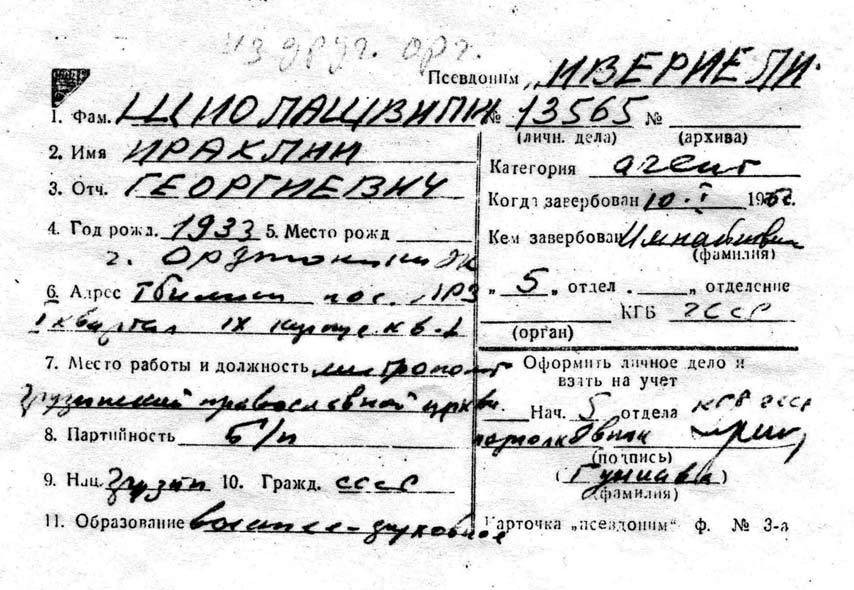 из друг. орг.
Псевдоним „ИВЕРИЕЛИ"
1. Фам. ШИОЛАШВИЛИ
2. Имя ИРАКЛИЙ
3. Отч. ГЕОРГИЕВИЧ
4. Год рожд. 1933 5. Место рожд
г. Орджоникидзе
6. Адрес Тбилиси пос.
I квартал IX корпус кв.
7. Место работы и должность митрополит
Грузинской православной церкви
8. Партийность б/п
9. Нац. грузин 10. Гражд. СССР
11. Образование высшее-духовное
№ 13565 №
(личн. дела) (архива)
Категория агент
Когда завербован 10.I 196 г.
Кем завербован
(фамилия)
„ 5 „ отдел „ отделение
КГБ ГССР
(орган)
Оформить личное дело и
взять на учет
Нач. 5 отдела КГБ ГССР
подполковник
(подпись)
(Гуниава)
(фамилия)
Карточка „псевдоним" ф. № 3-а